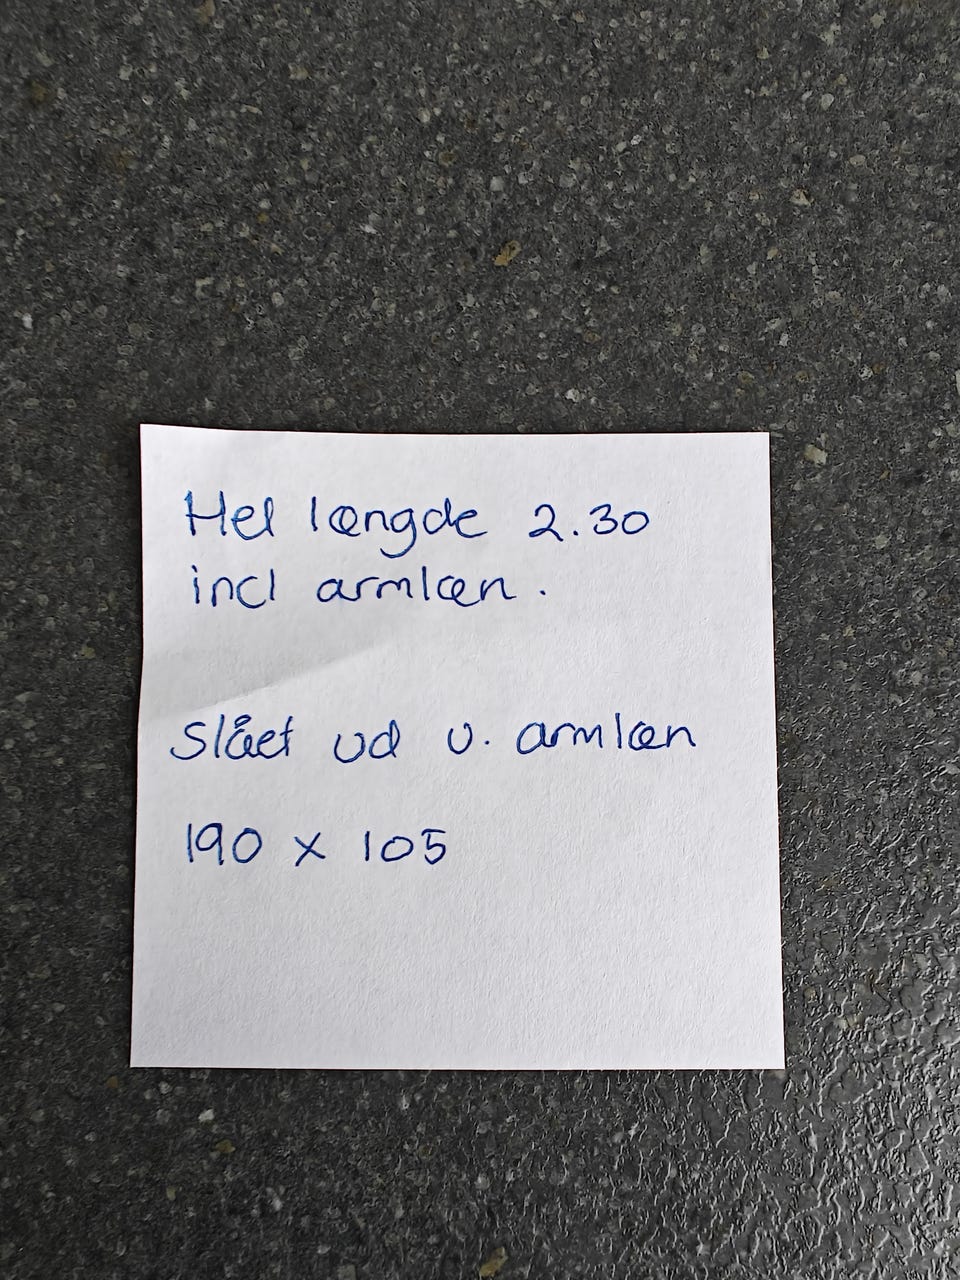 Hel længde 2.30
incl armlæn.
Slået ud u. armlæn
190 x 105